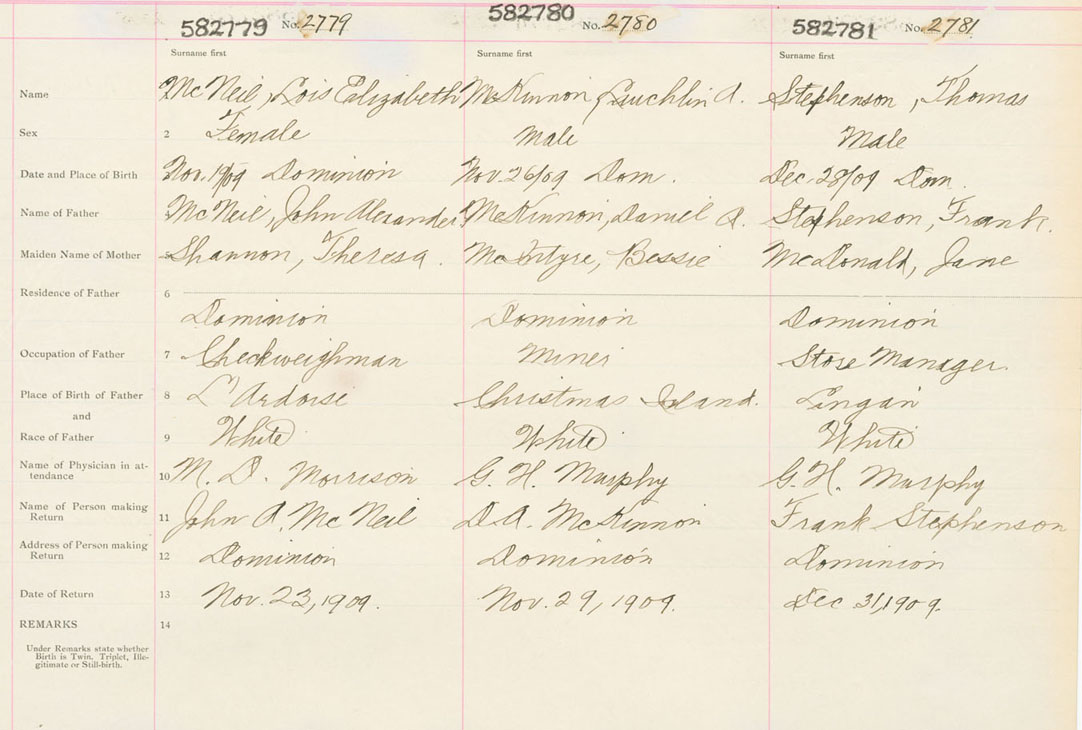 582779 No. 2779 582780 No. 2780 582781 No. 2781
Surname first Surname first Surname first
Name McNeil, Lois Elizabeth McKinnon, Lauchlin A. Stephenson, Thomas
Sex 2 Female Male Male
Date and Place of Birth Nov. 19/09 Dominion Nov 26/09 Dom. Dec. 28/09 Dom.
Name of Father McNeil, John Alexander McKinnon, Daniel A. Stephenson, Frank.
Maiden Name of Mother 5 Shannon, Theresa. McIntyre, Bessie McDonald, Jane
Residence of Father 6
Dominion Dominion Dominion
Occupation of Father 7 Checkweighman Miner Store Manager.
Place of Birth of Father 8 L'Ardoise Christmas Island. Lingan
and
Race of Father 9 White White White
Name of Physician in at-
tendance 10 M. D. Morrison G. H. Murphy G. H. Murphy
Name of Person making
Return 11 John A. McNeil D. A. McKinnon Frank Stephenson
Address of Person making
Return 12 Dominion Dominion Dominion
Date of Return 13 Nov. 23, 1909. Nov. 29, 1909. Dec 31, 1909.
REMARKS 14
Under Remarks state whether
Birth is Twin, Triplet, Ille-
gitimate or Still-birth.